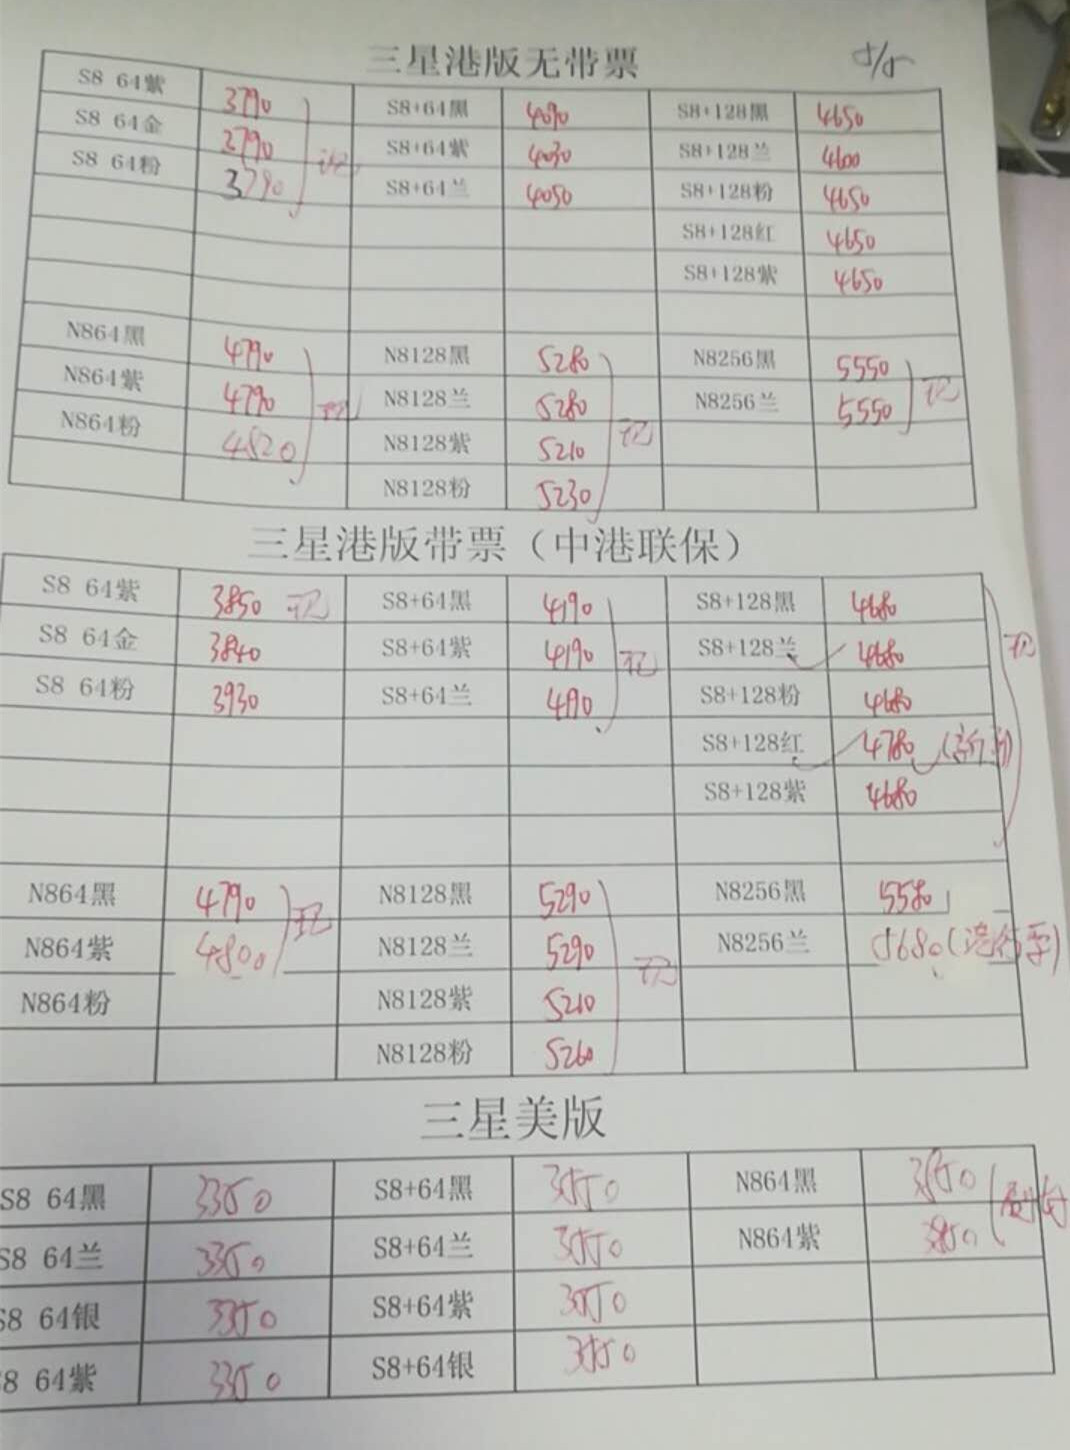 三星港版无带票 5/5
S8 64紫 3790 S8+64黑 4090 S8+128黑 4650
S8 64金 3790 S8+64紫 4030 S8+128兰 4600
S8 64粉 3790 S8+64兰 4050 S8+128粉 4650
S8+128红 4650
S8+128紫 4650
N864黑 4790 N8128黑 5280 N8256黑 5550
N864紫 4790 现 N8128兰 5280 N8256兰 5550 现
N864粉 4820 N8128紫 5210 现
N8128粉 5230
三星港版带票（中港联保）
S8 64紫 3850 现 S8+64黑 4190 S8+128黑 4680
S8 64金 3840 S8+64紫 4190 现 S8+128兰 4680 现
S8 64粉 3930 S8+64兰 4190 S8+128粉 4680
S8+128红 4780
S8+128紫 4680
N864黑 4790 现 N8128黑 5290 N8256黑 5580
N864紫 4800 N8128兰 5290 现 N8256兰 5680(港行票)
N864粉 N8128紫 5210
N8128粉 5260
三星美版
S8 64黑 3350 S8+64黑 3550 N864黑 3850
S8 64兰 3350 S8+64兰 3550 N864紫 3850
S8 64银 3350 S8+64紫 3550
8 64紫 3350 S8+64银 3550